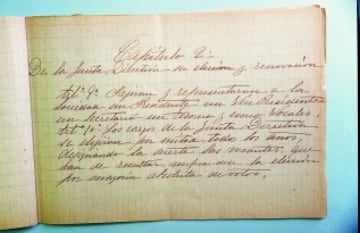 Capitulo 2º
De la Junta Directiva su elecion y renovacion
Artº 9º Regiran y representaran a la
sociedad un Presidente un Vice Presidente
un Secretario un tesorero y cinco Vocales.
Artº 10º Los cargos de la Junta Directiva
se eligiran por mitad todos los años
designando la suerte las vacantes, que
han de resultar siempre la elecion
por mayoria absoluta de votos.